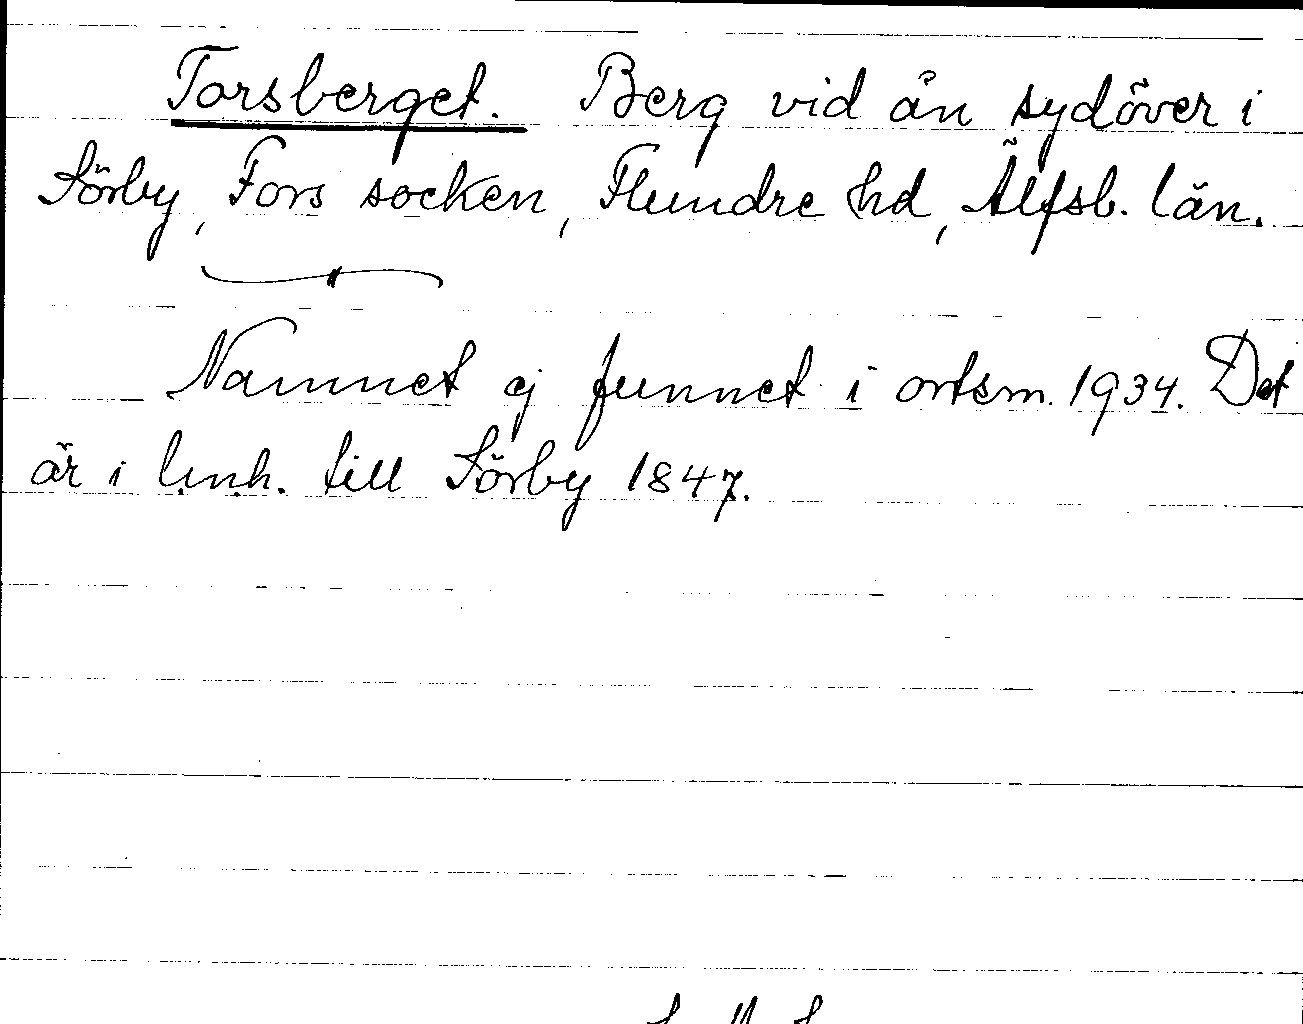 Torsberget. Berg vid ån sydöver i
Sörby, Fors socken, Flundre hd, Älfsb. län.
Namnet ej funnet i ortsm. 1934. Det
är i l.m.h. till Sörby 1847.